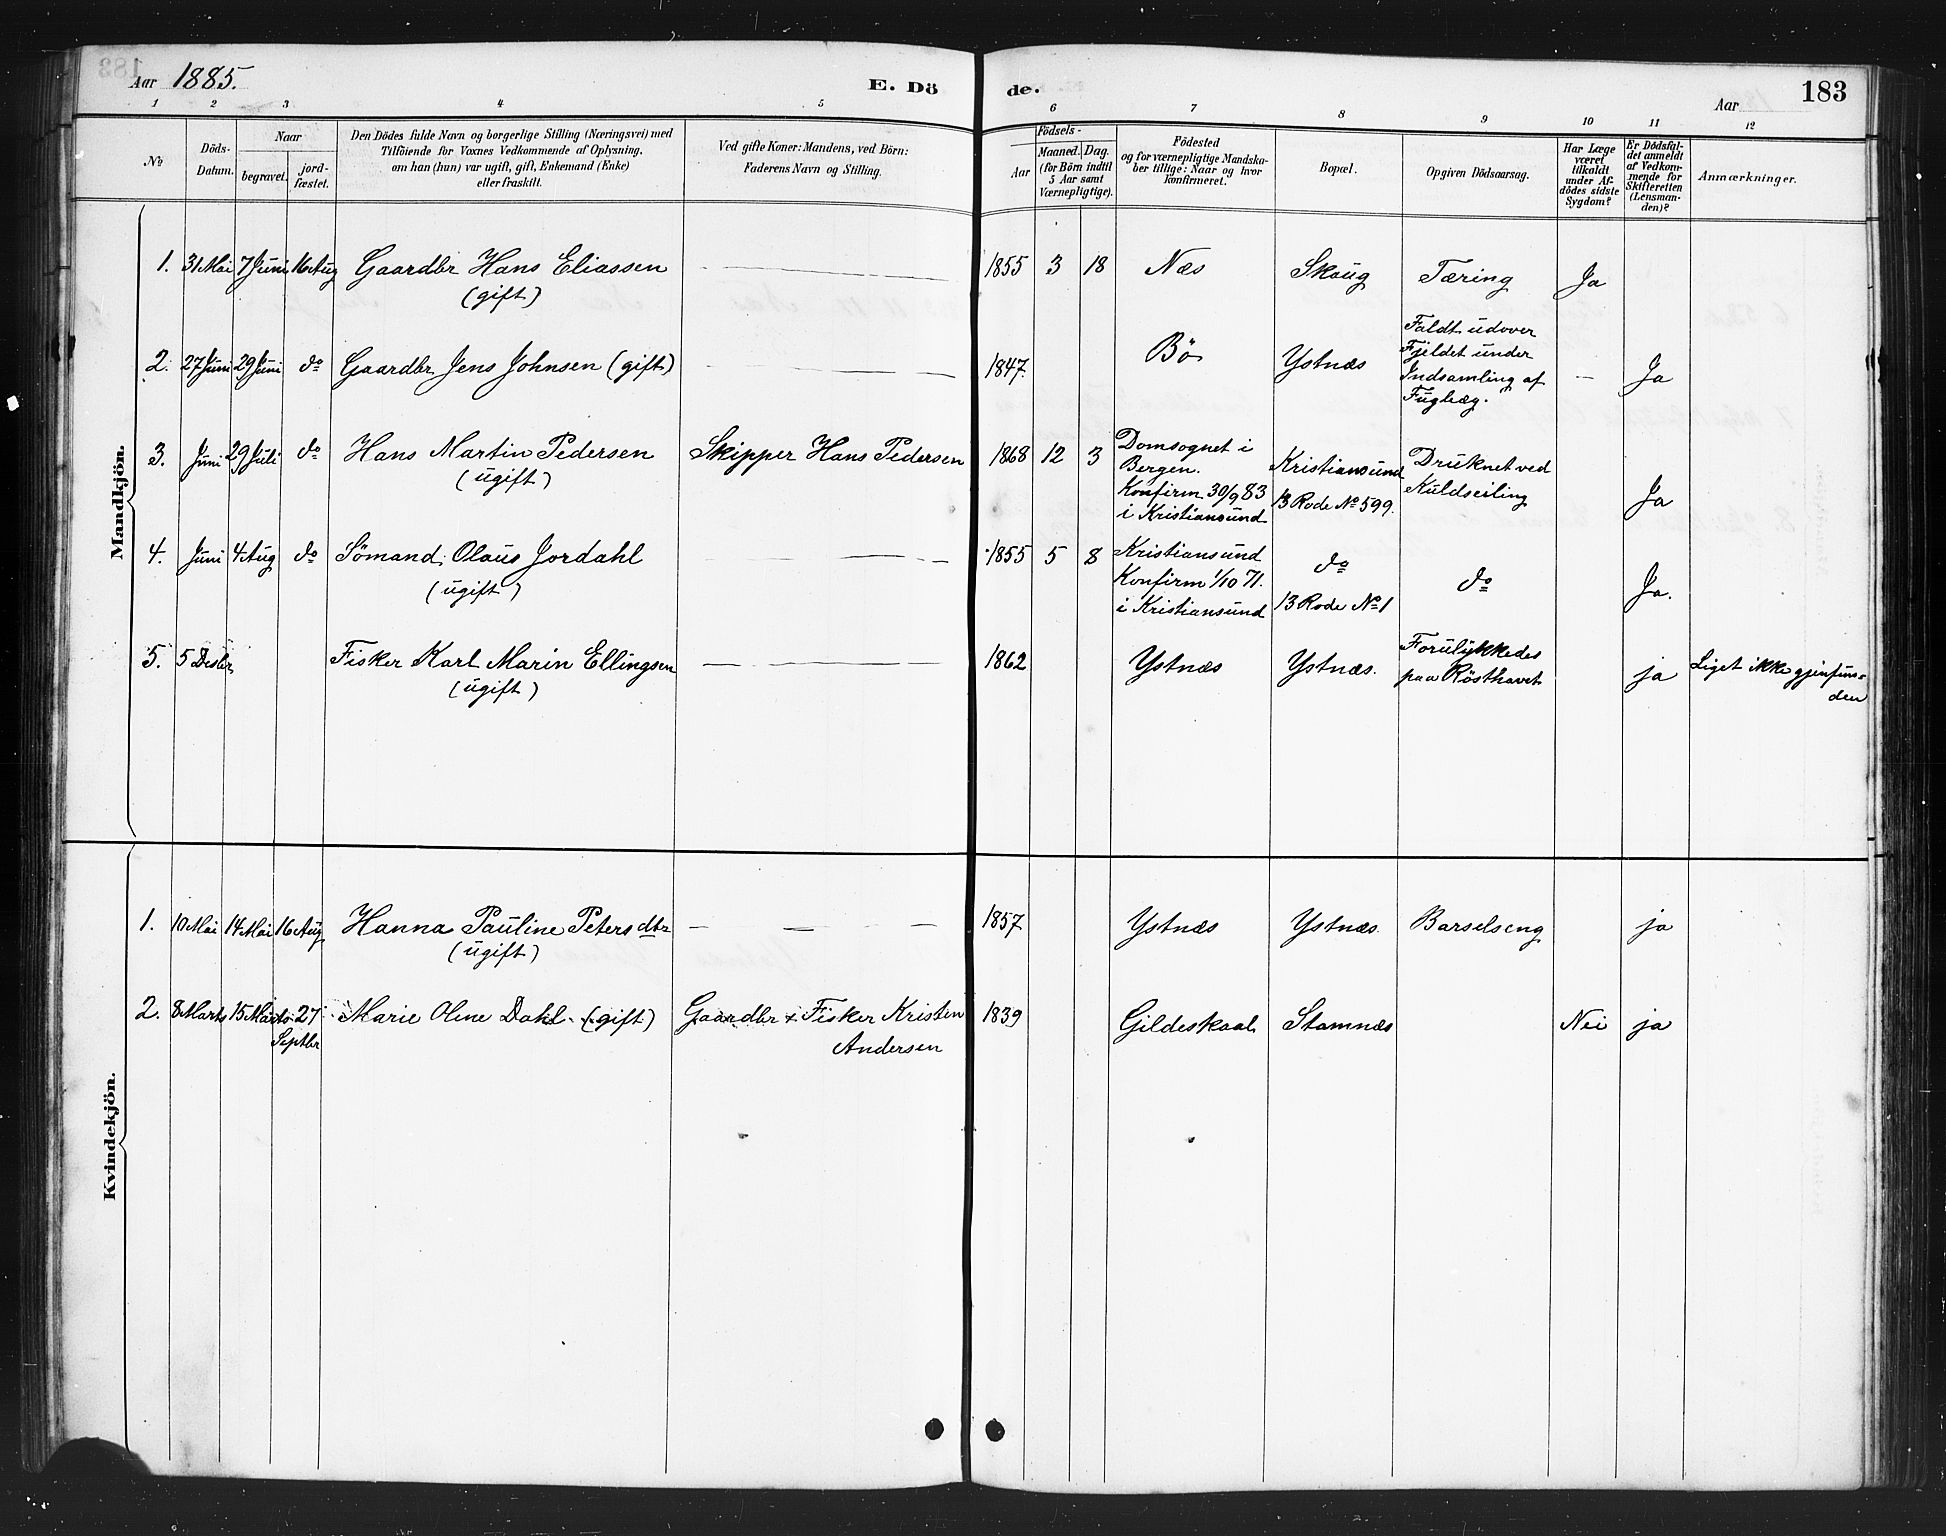 Aar 1885.
E. Dö
de.
Aar
183
1 2 3 4 5 6 7 8 9 10 11 12
No
Döds-
Datum.
Naar
begravet.
jord-
fæstet.
Den Dödes fulde Navn og borgerlige Stilling (Næringsvei) med
Tilföiende for Voxnes Vedkommende af Oplysning,
om han (hun) var ugift, gift, Enkemand (Enke)
eller fraskilt.
Ved gifte Koner: Mandens, ved Börn:
Faderens Navn og Stilling.
Födsels-
Aar
Maaned. Dag.
(for Börn indtil
5 Aar samt
Værnepligtige).
Födested
og for værnepligtige Mandska-
ber tillige: Naar og hvor
konfirmeret.
Bopæl.
Opgiven Dödsaarsag.
Har Læge
været
tilkaldt
under Af-
dödes sidste
Sygdom?
Er Dödsfal-
det anmeldt
af Vedkom-
mende for
Skifteretten
(Lensman-
den)?
Anmærkninger.
Mandkjön.
1. 31 Mai 7 Juni 16 Aug Gaardbr Hans Eliassen 1855 3 18 Næs Skaug Tæring Ja
(gift)
2. 27 Juni 29 Juni do Gaardbr Jens Johnsen (gift) 1847. Bö Ystnæs
Faldt udover
Fjeldet under
Indsamling af
Fuglæg.
— Ja
3. Juni 29 Juli do Hans Martin Pedersen Skipper Hans Pedersen 1868 12 3
(ugift)
Domsognet i
Bergen.
Konfirm 30/9 83
i Kristiansund
Kristiansund
13 Rode No 599.
Druknet ved
Kuldseiling
Ja
4. Juni 4 Aug do Sömand Olaus Jordahl 1855 5 8
(ugift)
Kristiansund
Konfirm 1/10 71.
i Kristiansund
do
13 Rode No 1
do
Ja.
5. 5 Desbr Fisker Karl Marin Ellingsen 1862 Ystnæs Ystnæs.
(ugift)
Forulykkedes
paa Rösthavet
ja
Liget ikke gjenfun-
den
Kvindekjön.
1. 10 Mai 14 Mai 16 Aug Hanna Pauline Petersdtr — — — 1857 Ystnæs Ystnæs. Barselseng ja
(ugift)
2. 8 Marts 15 Marts 27 Marie Oline Dahl (gift) Gaardbr & Fisker Kristen 1839 Gildeskaal Stamnæs Nei ja
Septbr
Andersen